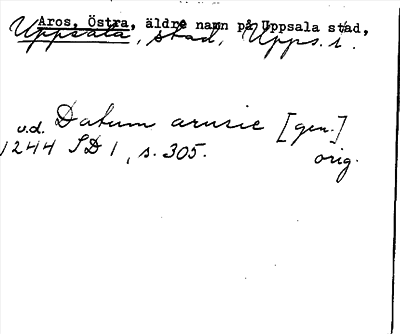 Aros, Östra, äldre namn på Uppsala stad,
Uppsala, stad, Upps. l.
u.d. Datum arusie [gen.]
1244 SD 1, s. 305. orig.